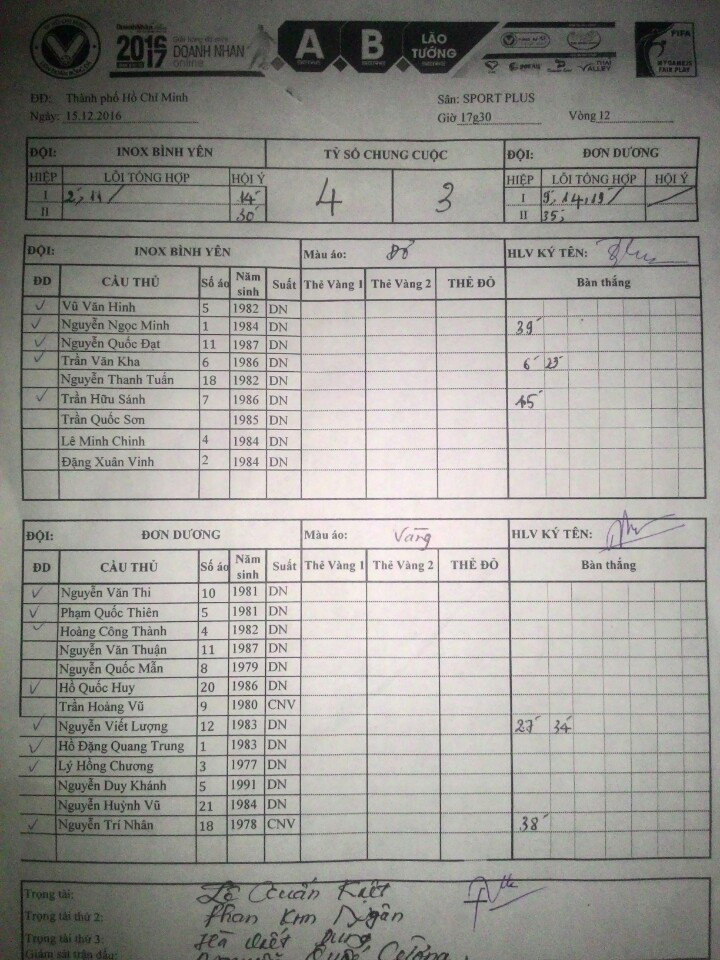 2016
17
DOANH NHAN
online
A B LÃO TƯỚNG
FIFA
MY GAME IS FAIR PLAY
THAI VALLEY
ĐĐ: Thành phố Hồ Chí Minh Sân: SPORT PLUS
Ngày: 15.12.2016 Giờ 17g30 Vòng 12
ĐỘI: INOX BÌNH YÊN TỶ SỐ CHUNG CUỘC ĐỘI: ĐƠN DƯƠNG
HIỆP LỖI TỔNG HỢP HỘI Ý 4 3 HIỆP LỖI TỔNG HỢP HỘI Ý
I 2, 11 14' I 9, 14, 19
II 30' II 35,
ĐỘI: INOX BÌNH YÊN Màu áo: Đỏ HLV KÝ TÊN:
ĐD CẦU THỦ Số áo Năm sinh Suất Thẻ Vàng 1 Thẻ Vàng 2 THẺ ĐỎ Bàn thắng
✓ Vũ Văn Hinh 5 1982 DN
✓ Nguyễn Ngọc Minh 1 1984 DN 39'
✓ Nguyễn Quốc Đạt 11 1987 DN
✓ Trần Văn Kha 6 1986 DN 6' 23'
Nguyễn Thanh Tuấn 18 1982 DN
✓ Trần Hữu Sánh 7 1986 DN 15'
Trần Quốc Sơn 1985 DN
Lê Minh Chinh 4 1984 DN
Đặng Xuân Vinh 2 1984 DN
ĐỘI: ĐƠN DƯƠNG Màu áo: Vàng HLV KÝ TÊN:
ĐD CẦU THỦ Số áo Năm sinh Suất Thẻ Vàng 1 Thẻ Vàng 2 THẺ ĐỎ Bàn thắng
✓ Nguyễn Văn Thi 10 1981 DN
✓ Phạm Quốc Thiên 5 1981 DN
✓ Hoàng Công Thành 4 1982 DN
Nguyễn Văn Thuận 11 1987 DN
Nguyễn Quốc Mẫn 8 1979 DN
✓ Hồ Quốc Huy 20 1986 DN
Trần Hoàng Vũ 9 1980 CNV
✓ Nguyễn Viết Lượng 12 1983 DN 27' 34'
✓ Hồ Đặng Quang Trung 1 1983 DN
✓ Lý Hồng Chương 3 1977 DN
Nguyễn Duy Khánh 5 1991 DN
Nguyễn Huỳnh Vũ 21 1984 DN
✓ Nguyễn Trí Nhân 18 1978 CNV 38'
Trọng tài: Lê Xuân Kiệt
Trọng tài thứ 2: Phan Kim Ngân
Trọng tài thứ 3: Hà Việt Dung
Giám sát trận đấu: Quốc Cường